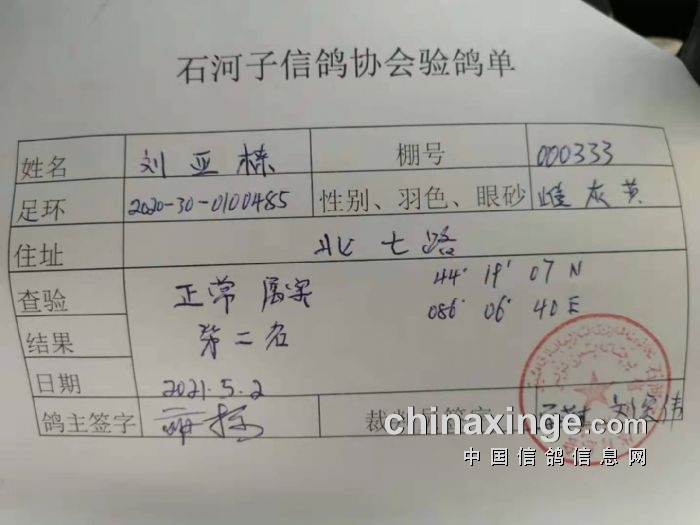 石河子信鸽协会验鸽单
姓名 刘亚栋 棚号 000333
足环 2020-30-0100485 性别、羽色、眼砂 雌灰黄
住址 北七路
查验 正常属实 44° 19' 07 N
086° 06' 40 E
结果 第二名
日期 2021.5.2
鸽主签字 裁判员签字
chinaxinge.com
中国信鸽信息网